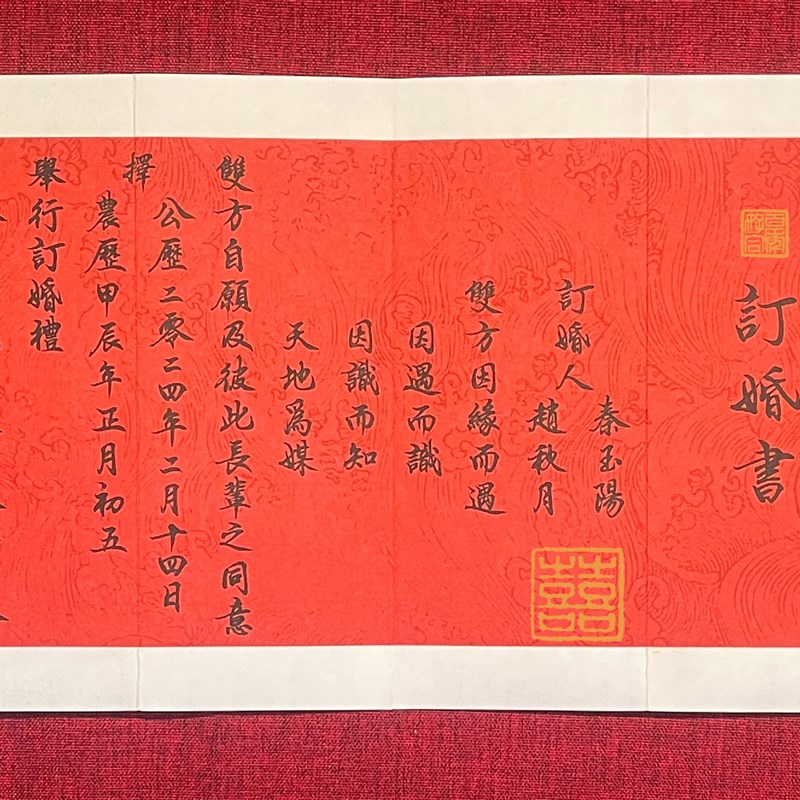 訂婚書
訂婚人
秦玉陽
趙秋月
雙方因緣而遇
因遇而識
因識而知
天地爲媒
雙方自願及彼此長輩之同意
擇
公歷二零二四年二月十四日
農歷甲辰年正月初五
舉行訂婚禮
囍